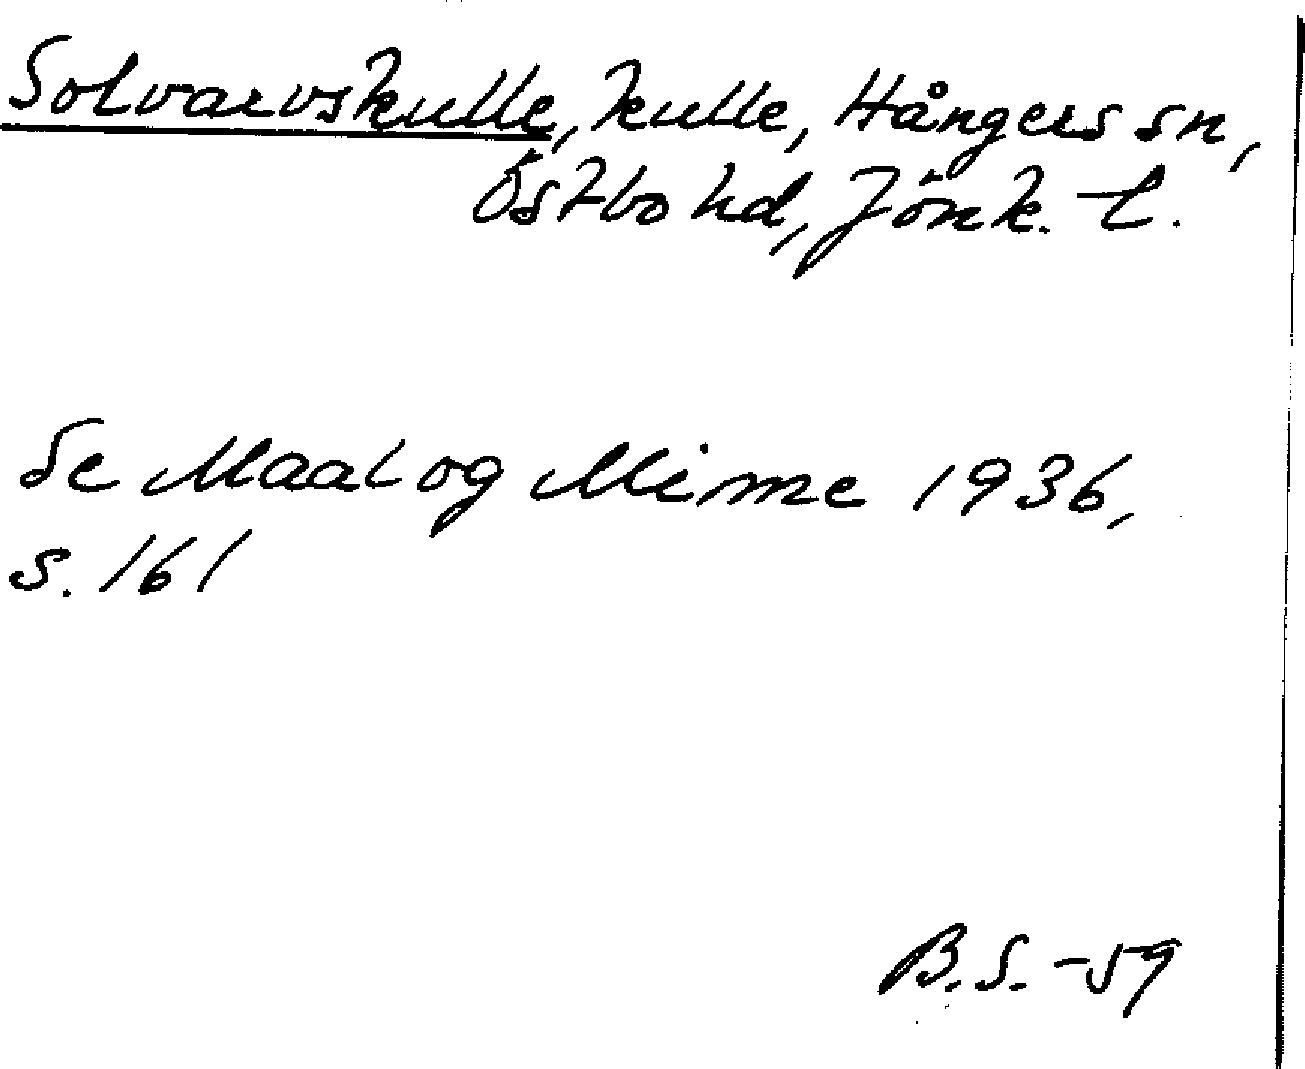 Solvarvskulle, kulle, Hångers sn,
Östbo hd, Jönk. l.
Se Maal og Minne 1936,
s. 161
B.S. -59